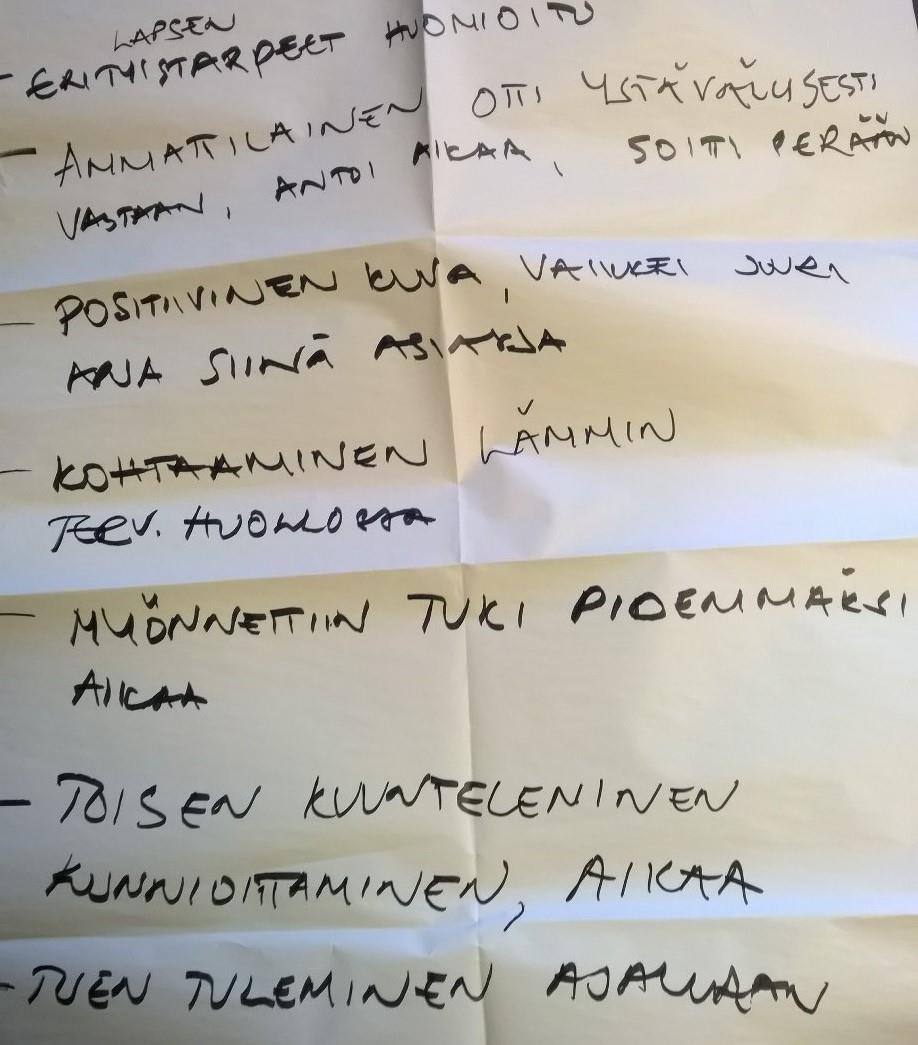 LAPSEN
- ERITYISTARPEET HUOMIOITU
- AMMATTILAINEN OTTI YSTÄVÄLLISESTI
VASTAAN, ANTOI AIKAA, SOITTI PERÄÄN
- POSITIIVINEN KUVA, VAIKKEI JUURI
APUA SIINÄ ASIASSA
- KOHTAAMINEN LÄMMIN
TERV. HUOLLOSSA
- MYÖNNETTIIN TUKI PIDEMMÄKSI
AIKAA
- TOISEN KUUNTELEMINEN
KUNNIOITTAMINEN, AIKAA
- TUEN TULEMINEN AJALLAAN